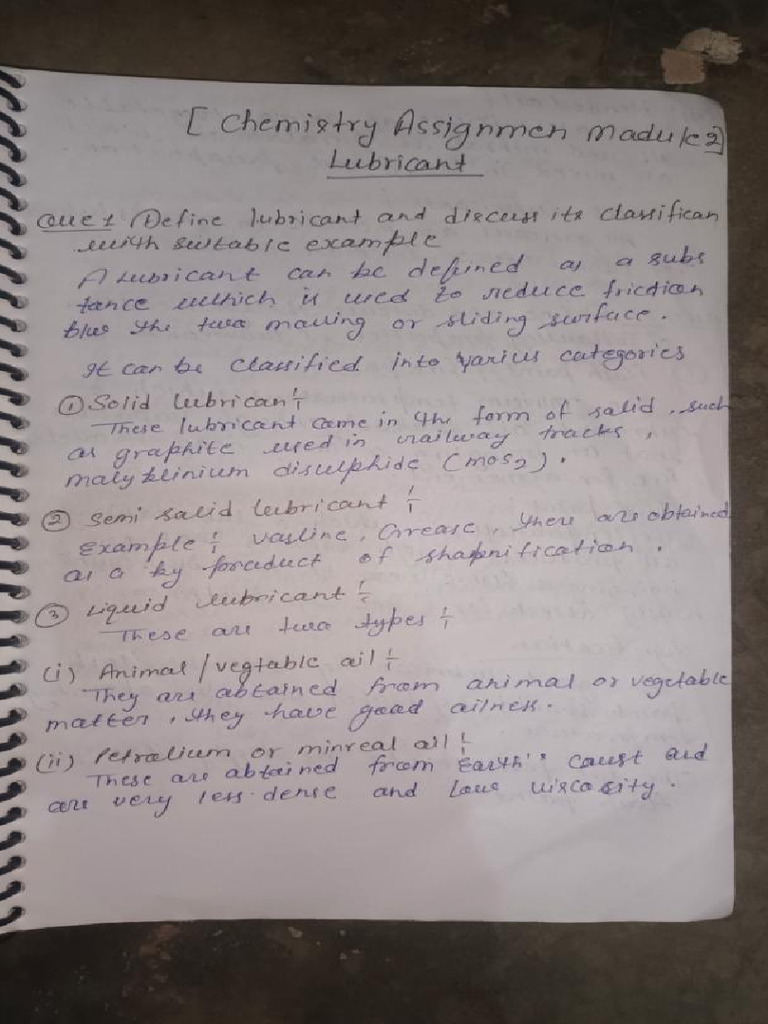 [ Chemistry Assignmen Module 2]
Lubricant
Que 1 Define lubricant and discuss its classifican
with suitable example
A lubricant can be defined as a subs
tance which is used to reduce friction
b/w the two moving or sliding surface.
It can be classified into varius categories
① Solid lubricant :-
These lubricant come in the form of solid, such
as graphite used in railway tracks,
malyblinium disulphide (MOS2).
② Semi solid lubricant :-
Example :- vasline, Grease, there are obtained
as a by product of
③ Liquid lubricant :-
These are two types :-
(i) Animal/vegtable oil :-
They are obtained from animal or vegetable
matter, they have good oilness.
(ii) Petrolium or minreal oil :-
These are obtained from Earth's caust and
are very less dense and low viscosity.